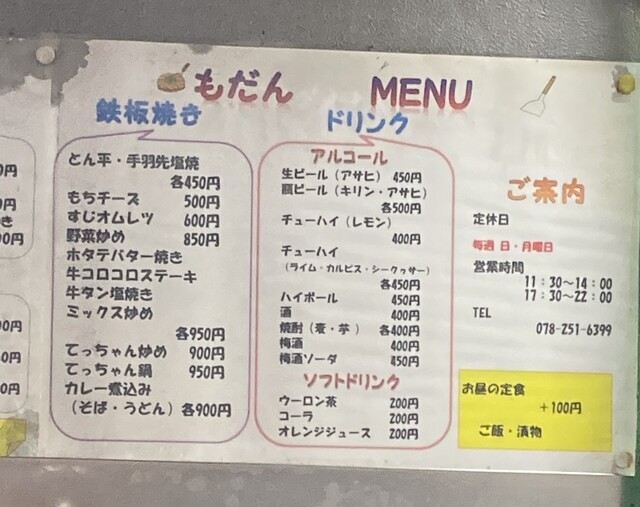 もだん MENU
鉄板焼き
とん平・手羽先塩焼
各450円
もちチーズ 500円
すじオムレツ 600円
野菜炒め 850円
ホタテバター焼き
牛コロコロステーキ
牛タン塩焼き
ミックス炒め
各950円
てっちゃん炒め 900円
てっちゃん鍋 950円
カレー煮込み
（そば・うどん）各900円
ドリンク
アルコール
生ビール（アサヒ） 450円
瓶ビール（キリン・アサヒ）
各500円
チューハイ（レモン）
400円
チューハイ
（ライム・カルピス・シークヮサー）
各450円
ハイボール 450円
酒 400円
焼酎（麦・芋） 各400円
梅酒 400円
梅酒ソーダ 450円
ソフトドリンク
ウーロン茶 200円
コーラ 200円
オレンジジュース 200円
ご案内
定休日
毎週 日・月曜日
営業時間
11：30〜14：00
17：30〜22：00
TEL
078-251-6399
お昼の定食
＋100円
ご飯・漬物